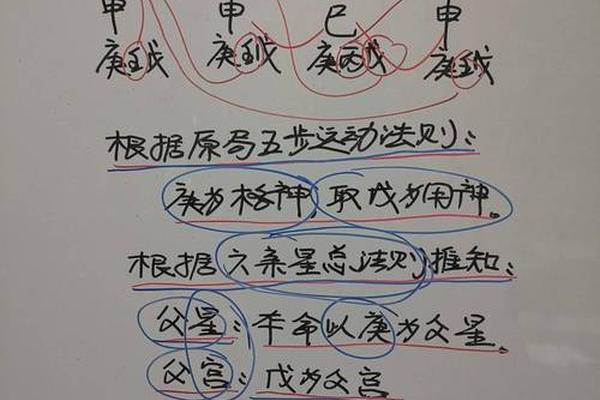 申 申 巳 申
庚壬戊 庚壬戊 庚丙戊 庚壬戊
根据原局五步运动法则：
庚为格神，取戊为用神。
根据六亲星总法则推知：
父星：本命以庚为父星。
父宫：戊为父宫